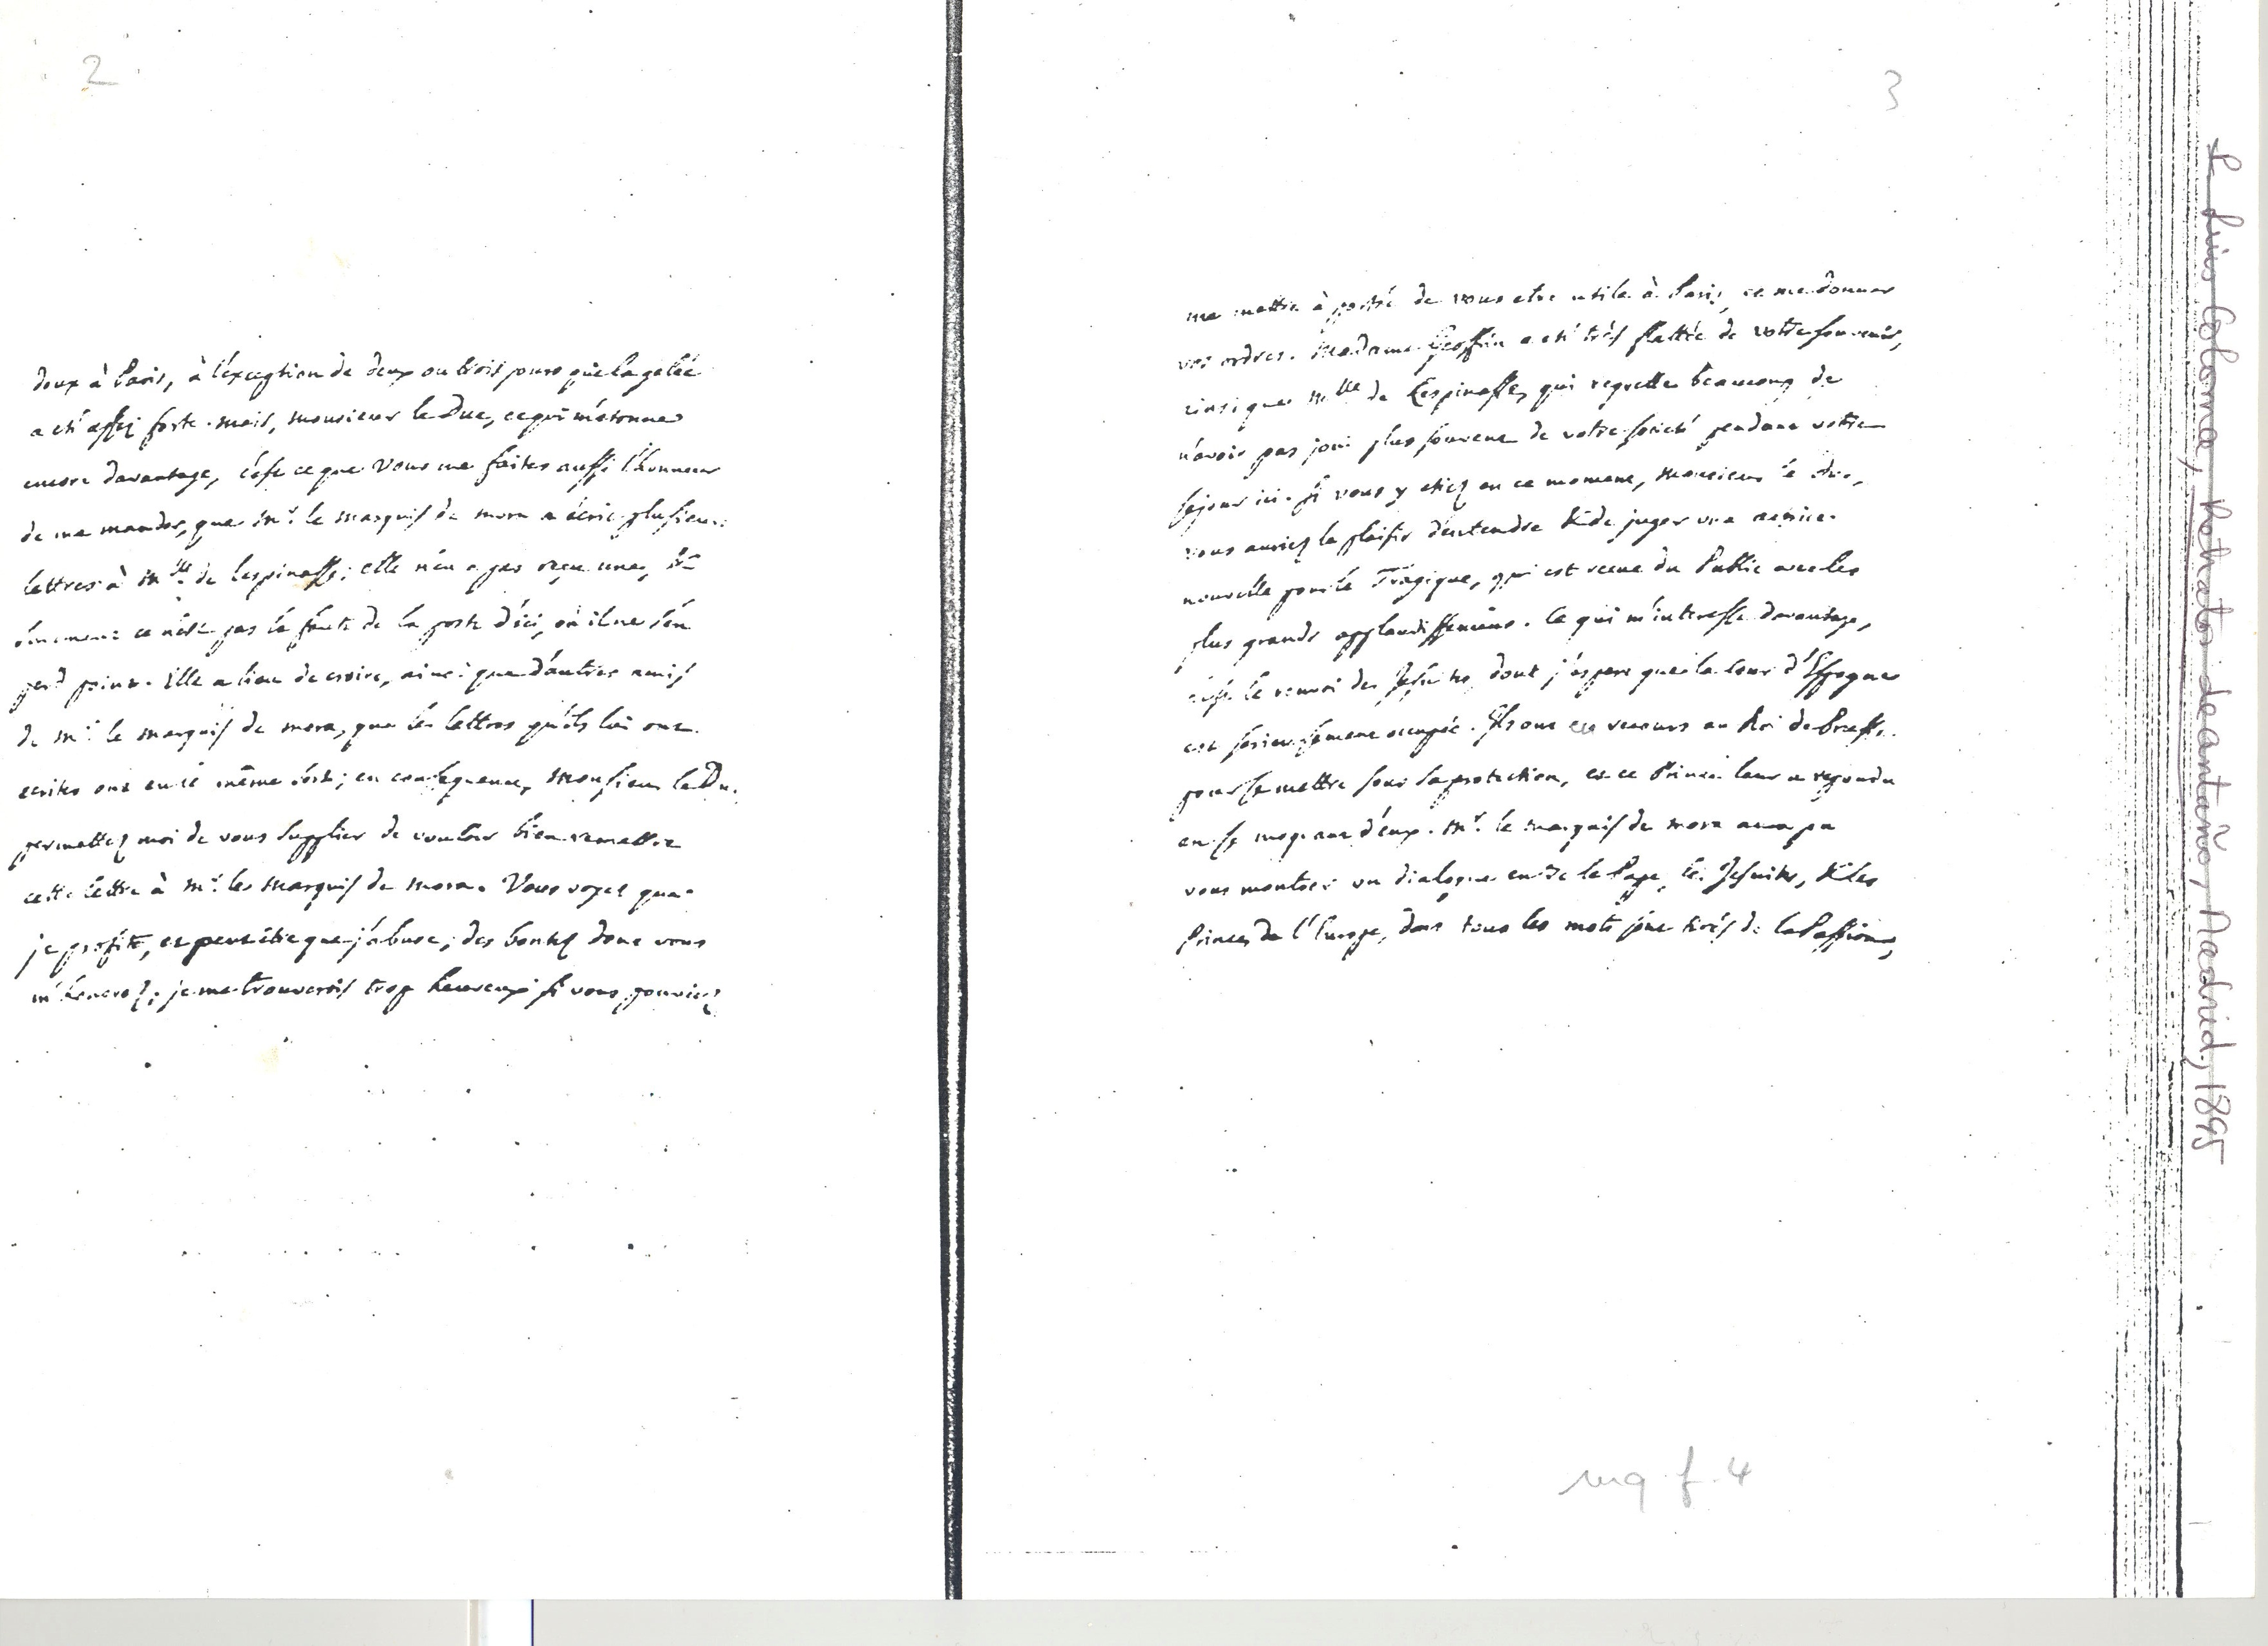 2
doux à Paris, à l'exception de deux ou trois jours que la gelée
a eté assez forte. mais, monsieur le Duc, ce qui m'etonne
encore davantage, c'est ce que vous me faites aussi l'honneur
de me mander, que Mr. le marquis de mora a écrit plusieurs
lettres à Mlle. de lespinasse; elle n'en a pas reçu une, &
surement ce n'est pas la faute de la poste d'ici, où il ne s'en
perd point. Elle a lieu de croire, ainsi que d'autres amis
de Mr. le marquis de mora, que les lettres qu'ils lui ont
ecrites ont eu le même sort; en consequence, Monsieur le Duc
permettez moi de vous supplier de vouloir bien remettre
cette lettre à Mr. le Marquis de mora. Vous voyez que
je profite, et peut être que j'abuse, des bontez dont vous
m'honorez; je me trouverois trop heureux si vous pouviez
3
me mettre à portée de vous etre utile à Paris, et me donner
vos ordres. Madame Geoffrin a eté très flattée de votre souvenir,
ainsi que Mlle de Lespinasse, qui regrette beaucoup de
n'avoir pas joui plus souvent de votre société pendant votre
sejour ici. Si vous y etiez en ce moment, Monsieur le duc,
vous auriez le plaisir d'entendre & de juger une actrice
nouvelle pour le Tragique, qui est recue du Public avec les
plus grands applaudissemens. Ce qui m'interesse davantage,
c'est le renvoi des Jesuites, dont j'espere que la Cour d'Espagne
est serieusement occupée. Ils ont eu recours au Roi de Prusse
pour se mettre sous sa protection, et ce Prince leur a repondu
en se moquant d'eux. Mr. le marquis de mora aura pu
vous montrer un dialogue entre le Pape, les Jesuites, & les
Princes de l'Europe, dont tous les mots sont tirés de la Passion,
mq f. 4
P. Luis Coloma, Retratos de antaño, Madrid, 1895